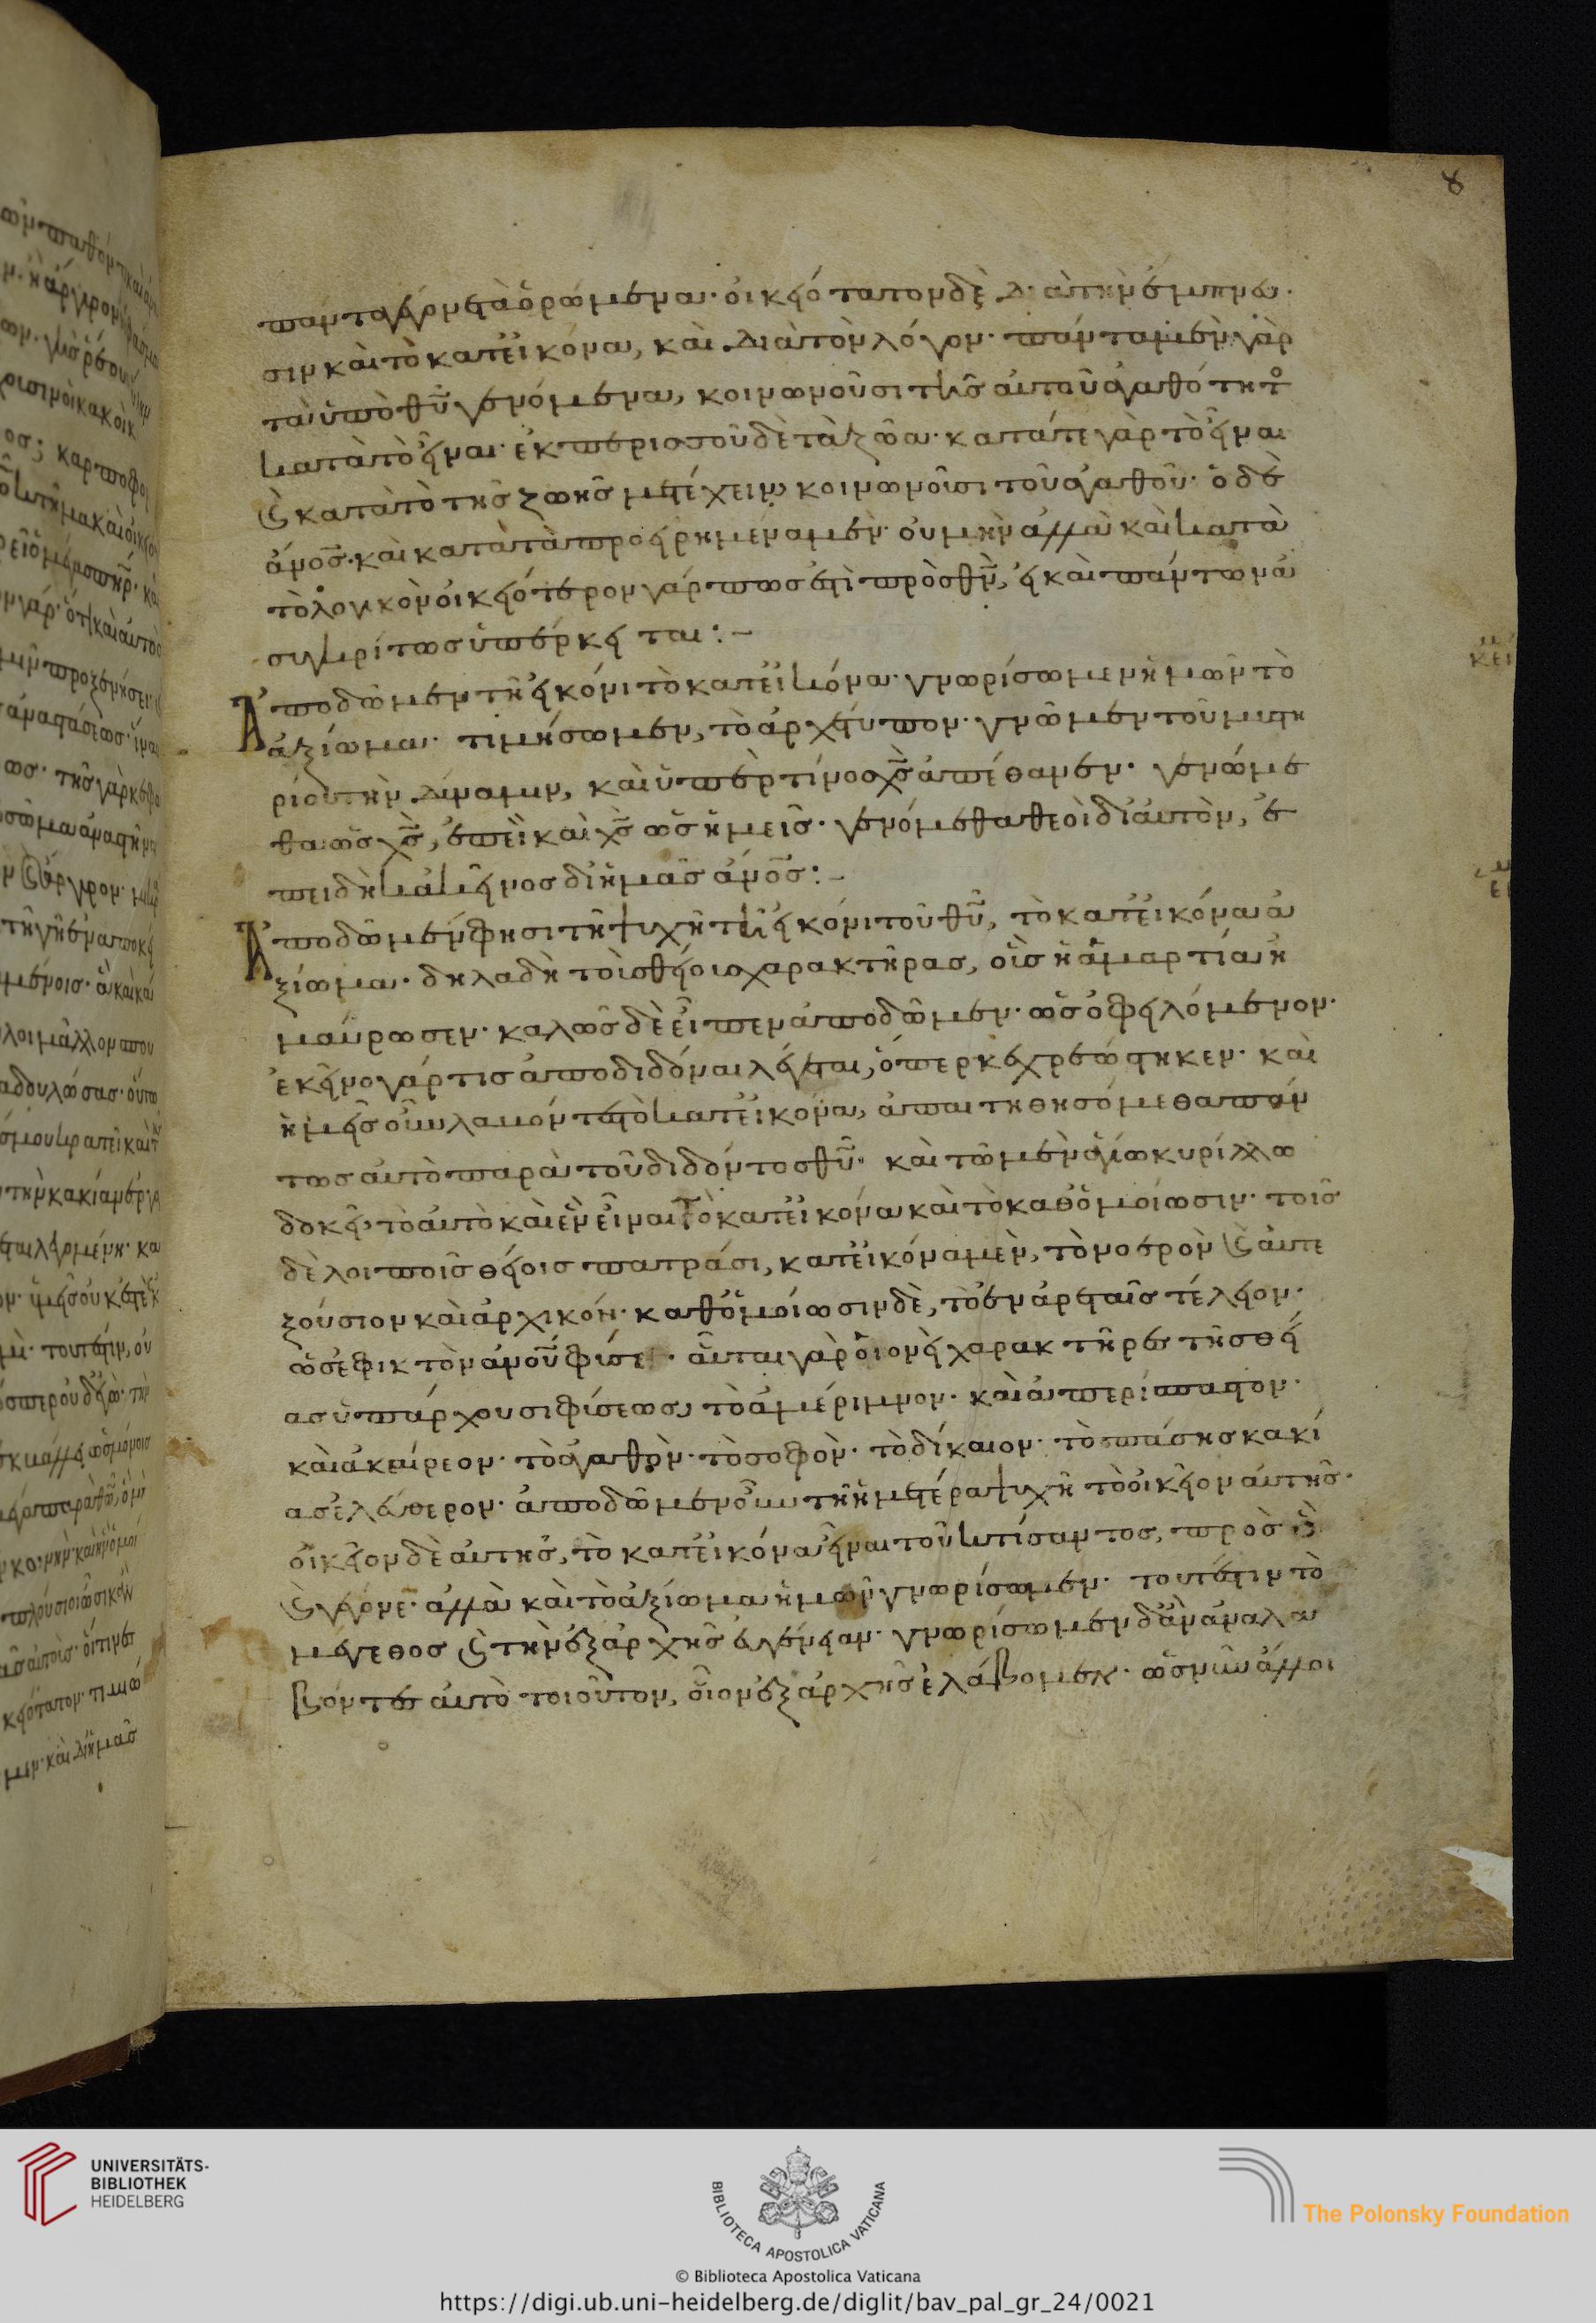 8
πάντα γάρ ἐστι τὰ ὁρώμενα· οἰκειότατον δὲ διὰ τὴν ἔμπνευ
σιν καὶ τὸ κατ' εἰκόνα, καὶ διὰ τὸν λόγον· πάντα μὲν γὰρ
τὰ ὑπὸ θῦ γενόμενα, κοινωνοῦσι τῆς αὐτοῦ ἀγαθότητος
κατὰ τὸ εἶναι· ἐκ περισσοῦ δὲ τὰ ζῶα· κατά τε γὰρ τὸ εἶναι
καὶ κατὰ τὸ τῆς ζωῆς μετέχειν κοινωνοῦσι τοῦ ἀγαθοῦ· ὁ δὲ
ἄνος· καὶ κατὰ τὰ προειρημένα μὲν· οὐ μὴν ἀλλὰ καὶ κατὰ
τὸ λογικὸν οἰκειότερον γάρ πως ἐστὶ πρὸς θν, εἰ καὶ πάντων ἀ
συγκρίτως ὑπέρκειται:–
Ἀποδῶμεν τῇ εἰκόνι τὸ κατ' εἰκόνα· γνωρίσωμεν ἡμῶν τὸ
ἀξίωμα· τιμήσωμεν, τὸ ἀρχέτυπον· γνῶμεν τοῦ μυστη
ρίου τὴν δύναμιν, καὶ ὑπὲρ τίνος χς ἀπέθανεν· γενώμε
θα ὡς χς, ἐπεὶ καὶ χς ὡς ἡμεῖς· γενόμεθα θεοὶ δι' αὐτὸν, ἐ
πειδὴ κἀκεῖνος δι' ἡμᾶς ἄνος:–
Ἀποδῶμέν φησι τῇ ψυχῇ τῇ εἰκόνι τοῦ θῦ, τὸ κατ' εἰκόνα ἀ
ξίωμα· δηλαδὴ τοὺς θείους χαρακτῆρας, οἷς ἡ ἁμαρτία ἠ
μαύρωσεν· καλῶς δὲ εἶπεν ἀποδῶμεν· ὡς ὀφειλόμενον·
ἐκεῖνο γάρ τις ἀποδιδόναι λέγεται, ὅπερ κεχρεώστηκεν· καὶ
ἡμεῖς οὖν λαβόντες τὸ κατ' εἰκόνα, ἀπαιτηθησόμεθα πάν
τως αὐτὸ παρὰ τοῦ διδόντος θῦ· καὶ τῶ μὲν ἁγίω κυρίλλω
δοκεῖ, τὸ αὐτὸ καὶ ἓν εἶναι τὸ κατ' εἰκόνα καὶ τὸ καθ' ὁμοίωσιν· τοῖς
δὲ λοιποῖς θείοις πατράσι, κατ' εἰκόνα μὲν, τὸ νοερὸν καὶ αὐτε
ξούσιον καὶ ἀρχικόν· καθ' ὁμοίωσιν δὲ, τὸ ἐν ἀρεταῖς τέλειον·
ὡς ἐφικτὸν ἀνοῦ φύσει· αὗται γὰρ οἱονεὶ χαρακτῆρες τῆς θεί
ας ὑπάρχουσι φύσεως, τὸ ἀμέριμνον· καὶ ἀπερίσπαστον·
καὶ ἀκέραιον· τὸ ἀγαθὸν· τὸ σοφὸν· τὸ δίκαιον· τὸ πάσης κακί
ας ἐλεύθερον· ἀποδῶμεν οὖν τῇ ἡμετέρα ψυχῇ τὸ οἰκεῖον αὐτῆς·
οἰκεῖον δὲ αὐτῆς, τὸ κατ' εἰκόνα εἶναι τοῦ κτίσαντος, πρὸς ὃ
καὶ γέγονε· ἀλλὰ καὶ τὸ ἀξίωμα ἡμῶν γνωρίσωμεν· τουτέστιν τὸ
μέγεθος καὶ τὴν ἐξ ἀρχῆς εὐγένειαν· γνωρίσωμεν δ' ἂν ἀναλα
βόντες αὐτὸ τοιοῦτον, οἷον ἐξ ἀρχῆς ἐλάβομεν· ὡς νῦν ἄλλοι
UNIVERSITÄTS-
BIBLIOTHEK
HEIDELBERG
BIBLIOTECA APOSTOLICA VATICANA
The Polonsky Foundation
© Biblioteca Apostolica Vaticana
https://digi.ub.uni-heidelberg.de/diglit/bav_pal_gr_24/0021